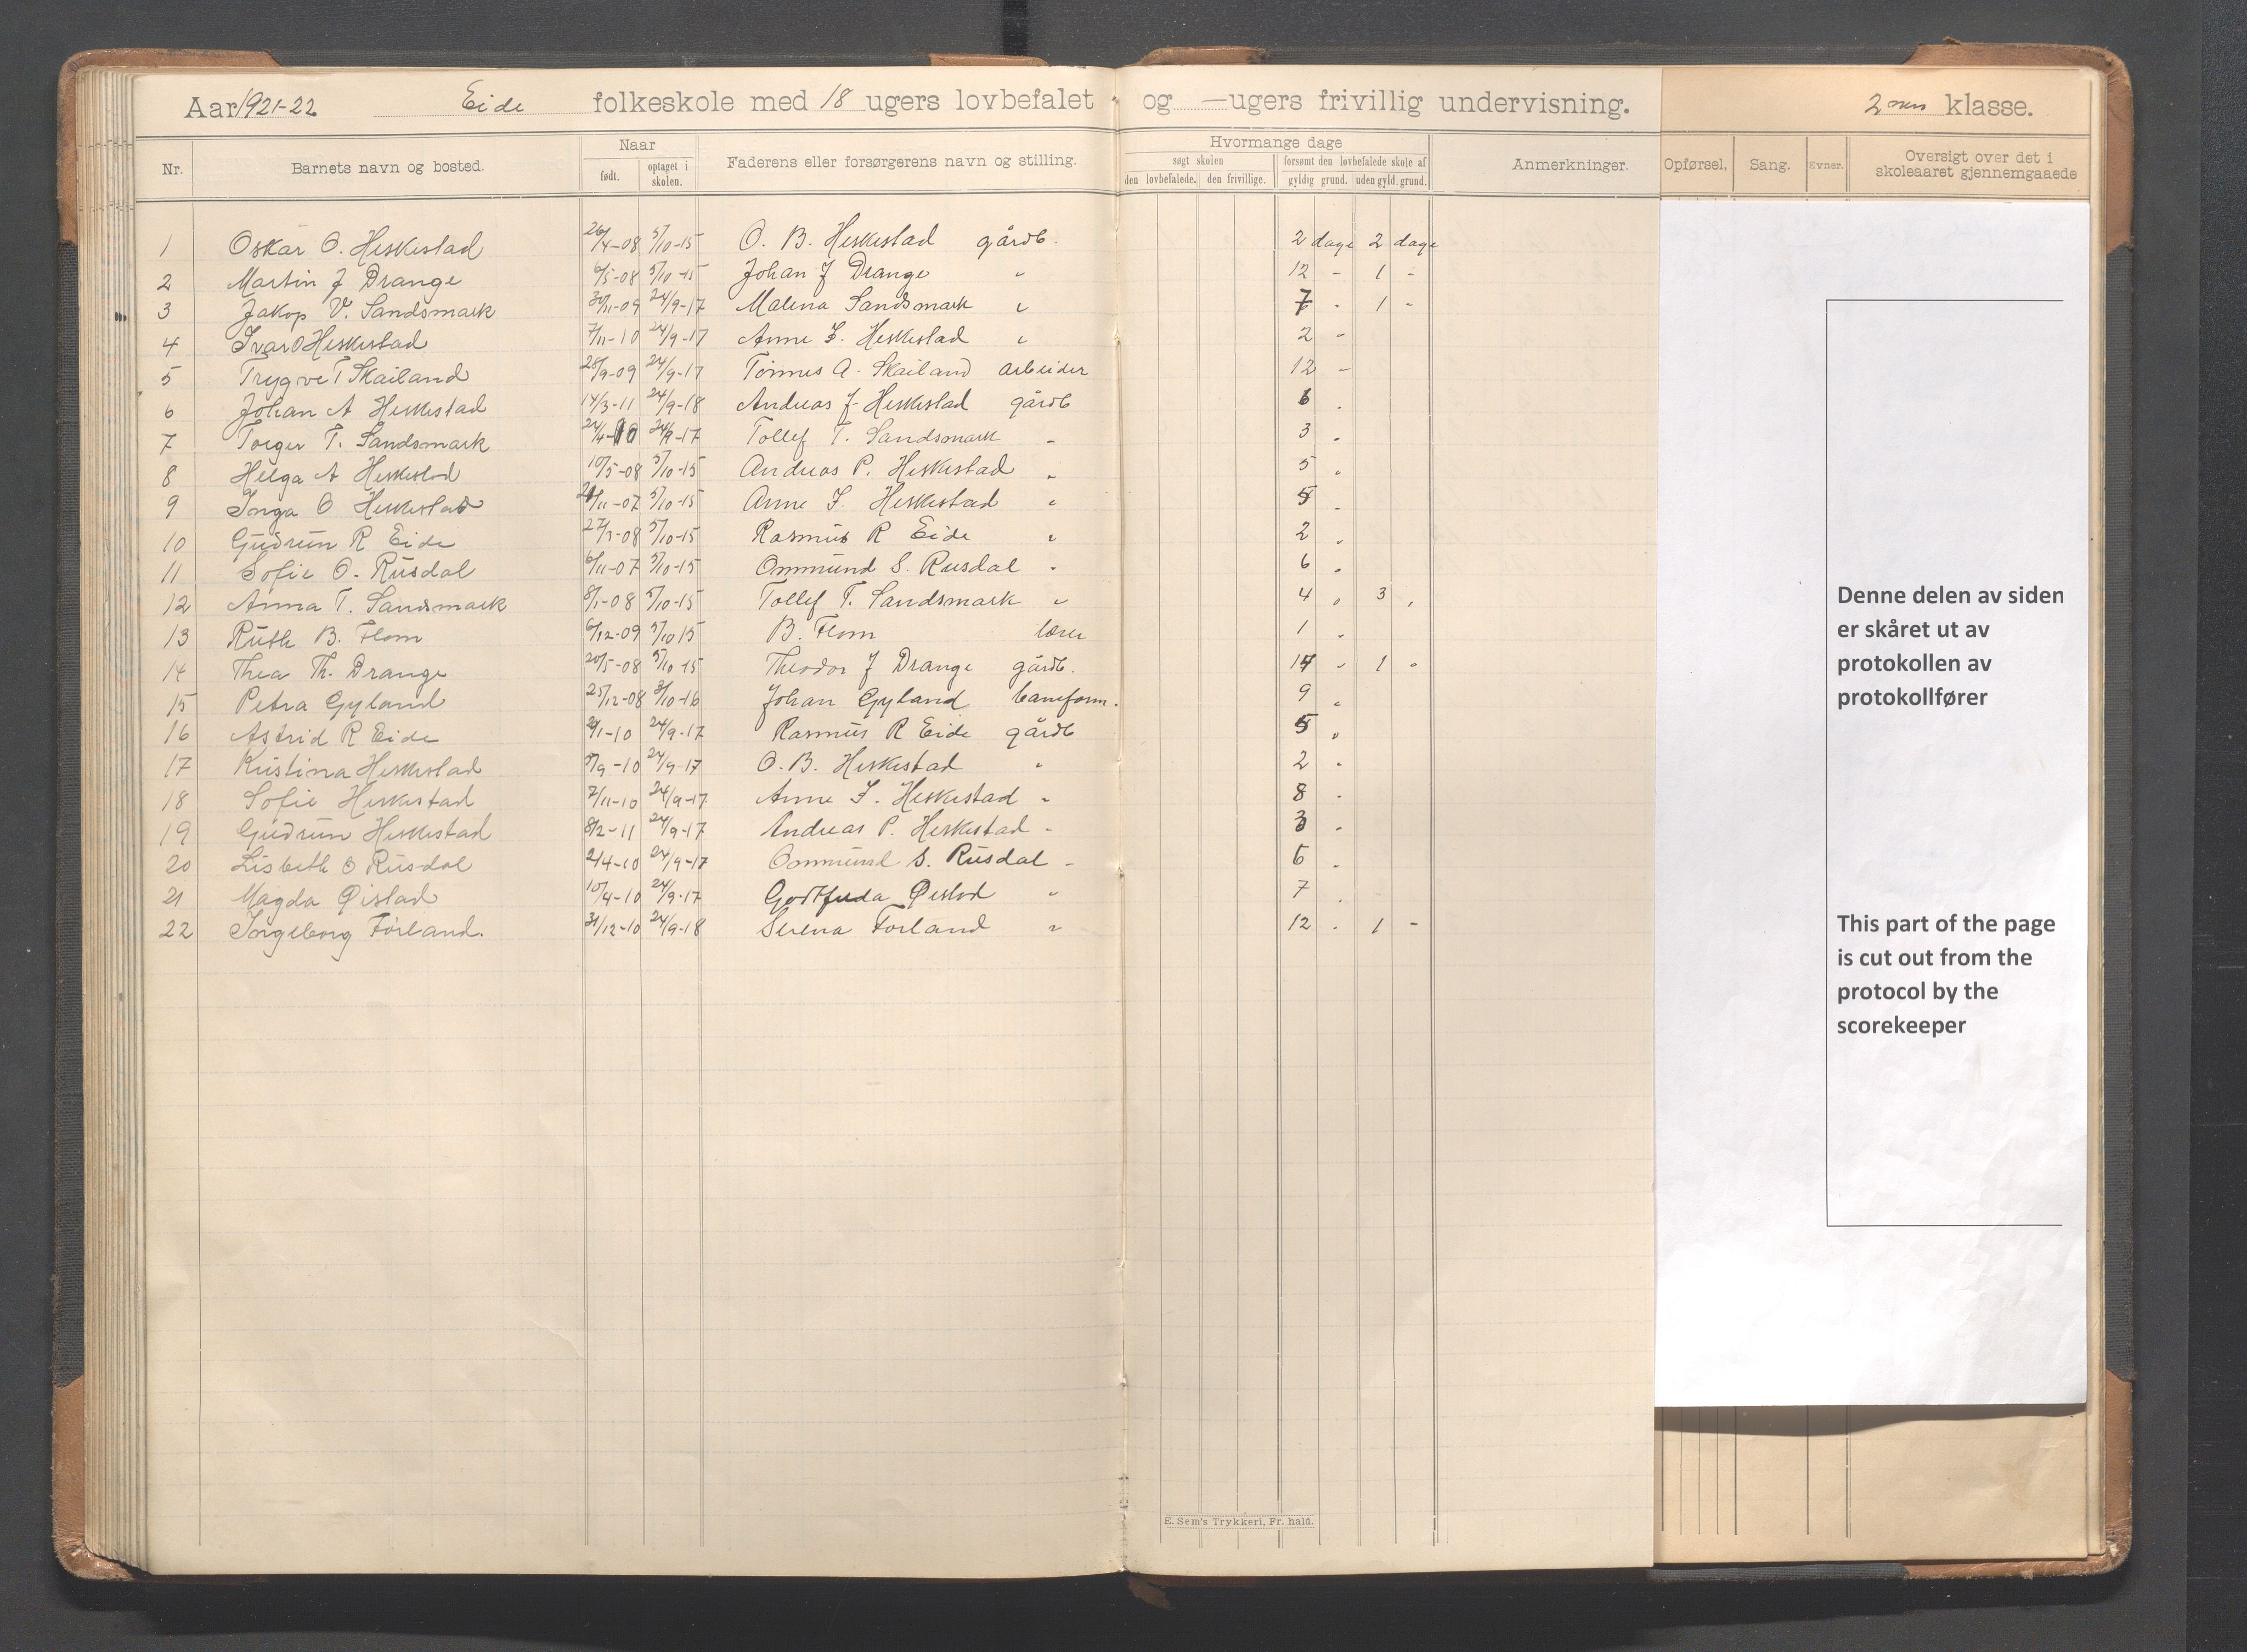 Aar 1921-22 Eide folkeskole med 18 ugers lovbefalet og — ugers frivillig undervisning. 2nen klasse.
Nr. Barnets navn og bosted. Naar født. optaget i skolen. Faderens eller forsørgerens navn og stilling. Hvormange dage søgt skolen den lovbefalede. den frivillige. forsømt den lovbefalede skole af gyldig grund. uden gyld. grund. Anmerkninger. Opførsel, Sang. Evner. Oversigt over det i skoleaaret gjennemgaaede
1 Oskar O. Heskestad 26/4-08 5/10-15 O. B. Heskestad gårdb. 2 dage 2 dage
2 Martin J Drange 6/5-08 5/10-15 Johan J Drange " 12 - 1 -
3 Jakop V. Sandsmark 30/11-09 24/9-17 Malena Sandsmark " 7 - 1 -
4 Ivar O Heskestad 7/11-10 24/9-17 Anne I. Heskestad " 2 -
5 Trygve T Skailand 28/9-09 24/9-17 Tønnes A. Skailand arbeider 12 -
6 Johan A Heskestad 14/3-11 24/9-18 Andreas J. Heskestad gårdb 6 -
7 Torger T. Sandsmark 24/4-10 24/9-17 Tollef T. Sandsmark - 3 -
8 Helga A Heskestad 10/5-08 5/10-15 Andreas P. Heskestad " 5 "
9 Inga O Heskestad 21/11-07 5/10-15 Anne I. Heskestad " 5 -
10 Gudrun R Eide 27/3-08 5/10-15 Rasmus R Eide " 2 "
11 Sofie O. Rusdal 6/11-07 5/10-15 Ommund S. Rusdal " 6 "
12 Anna T. Sandsmark 8/1-08 5/10-15 Tollef T. Sandsmark " 4 " 3 "
13 Ruth B. Flom 6/12-09 5/10 15 B. Flom lærer 1 -
14 Thea Th. Drange 20/5-08 5/10-15 Theodor J Drange gårdb. 14 - 1 -
15 Petra Gyland 25/12-08 3/10-16 Johan Gyland baneform. 9 "
16 Astrid R Eide 2/1-10 24/9-17 Rasmus R Eide gårdb 5 "
17 Kristina Heskestad 5/9-10 24/9-17 O. B. Heskestad " 2 "
18 Sofie Heskestad 7/11-10 24/9-17 Anne I. Heskestad - 8 -
19 Gudrun Heskestad 8/2-11 24/9-17 Andreas P. Heskestad - 3 -
20 Lisbeth O Rusdal 2/4-10 24/9-17 Ommund S. Rusdal - 6 -
21 Magda Øistad 10/4-10 24/9-17 Godtfreda Øistad " 7 -
22 Ingeborg Førland. 31/12-10 24/9-18 Serena Førland " 12 - 1 -
Denne delen av siden
er skåret ut av
protokollen av
protokollfører
This part of the page
is cut out from the
protocol by the
scorekeeper
E. Sem's Trykkeri, Fr. hald.